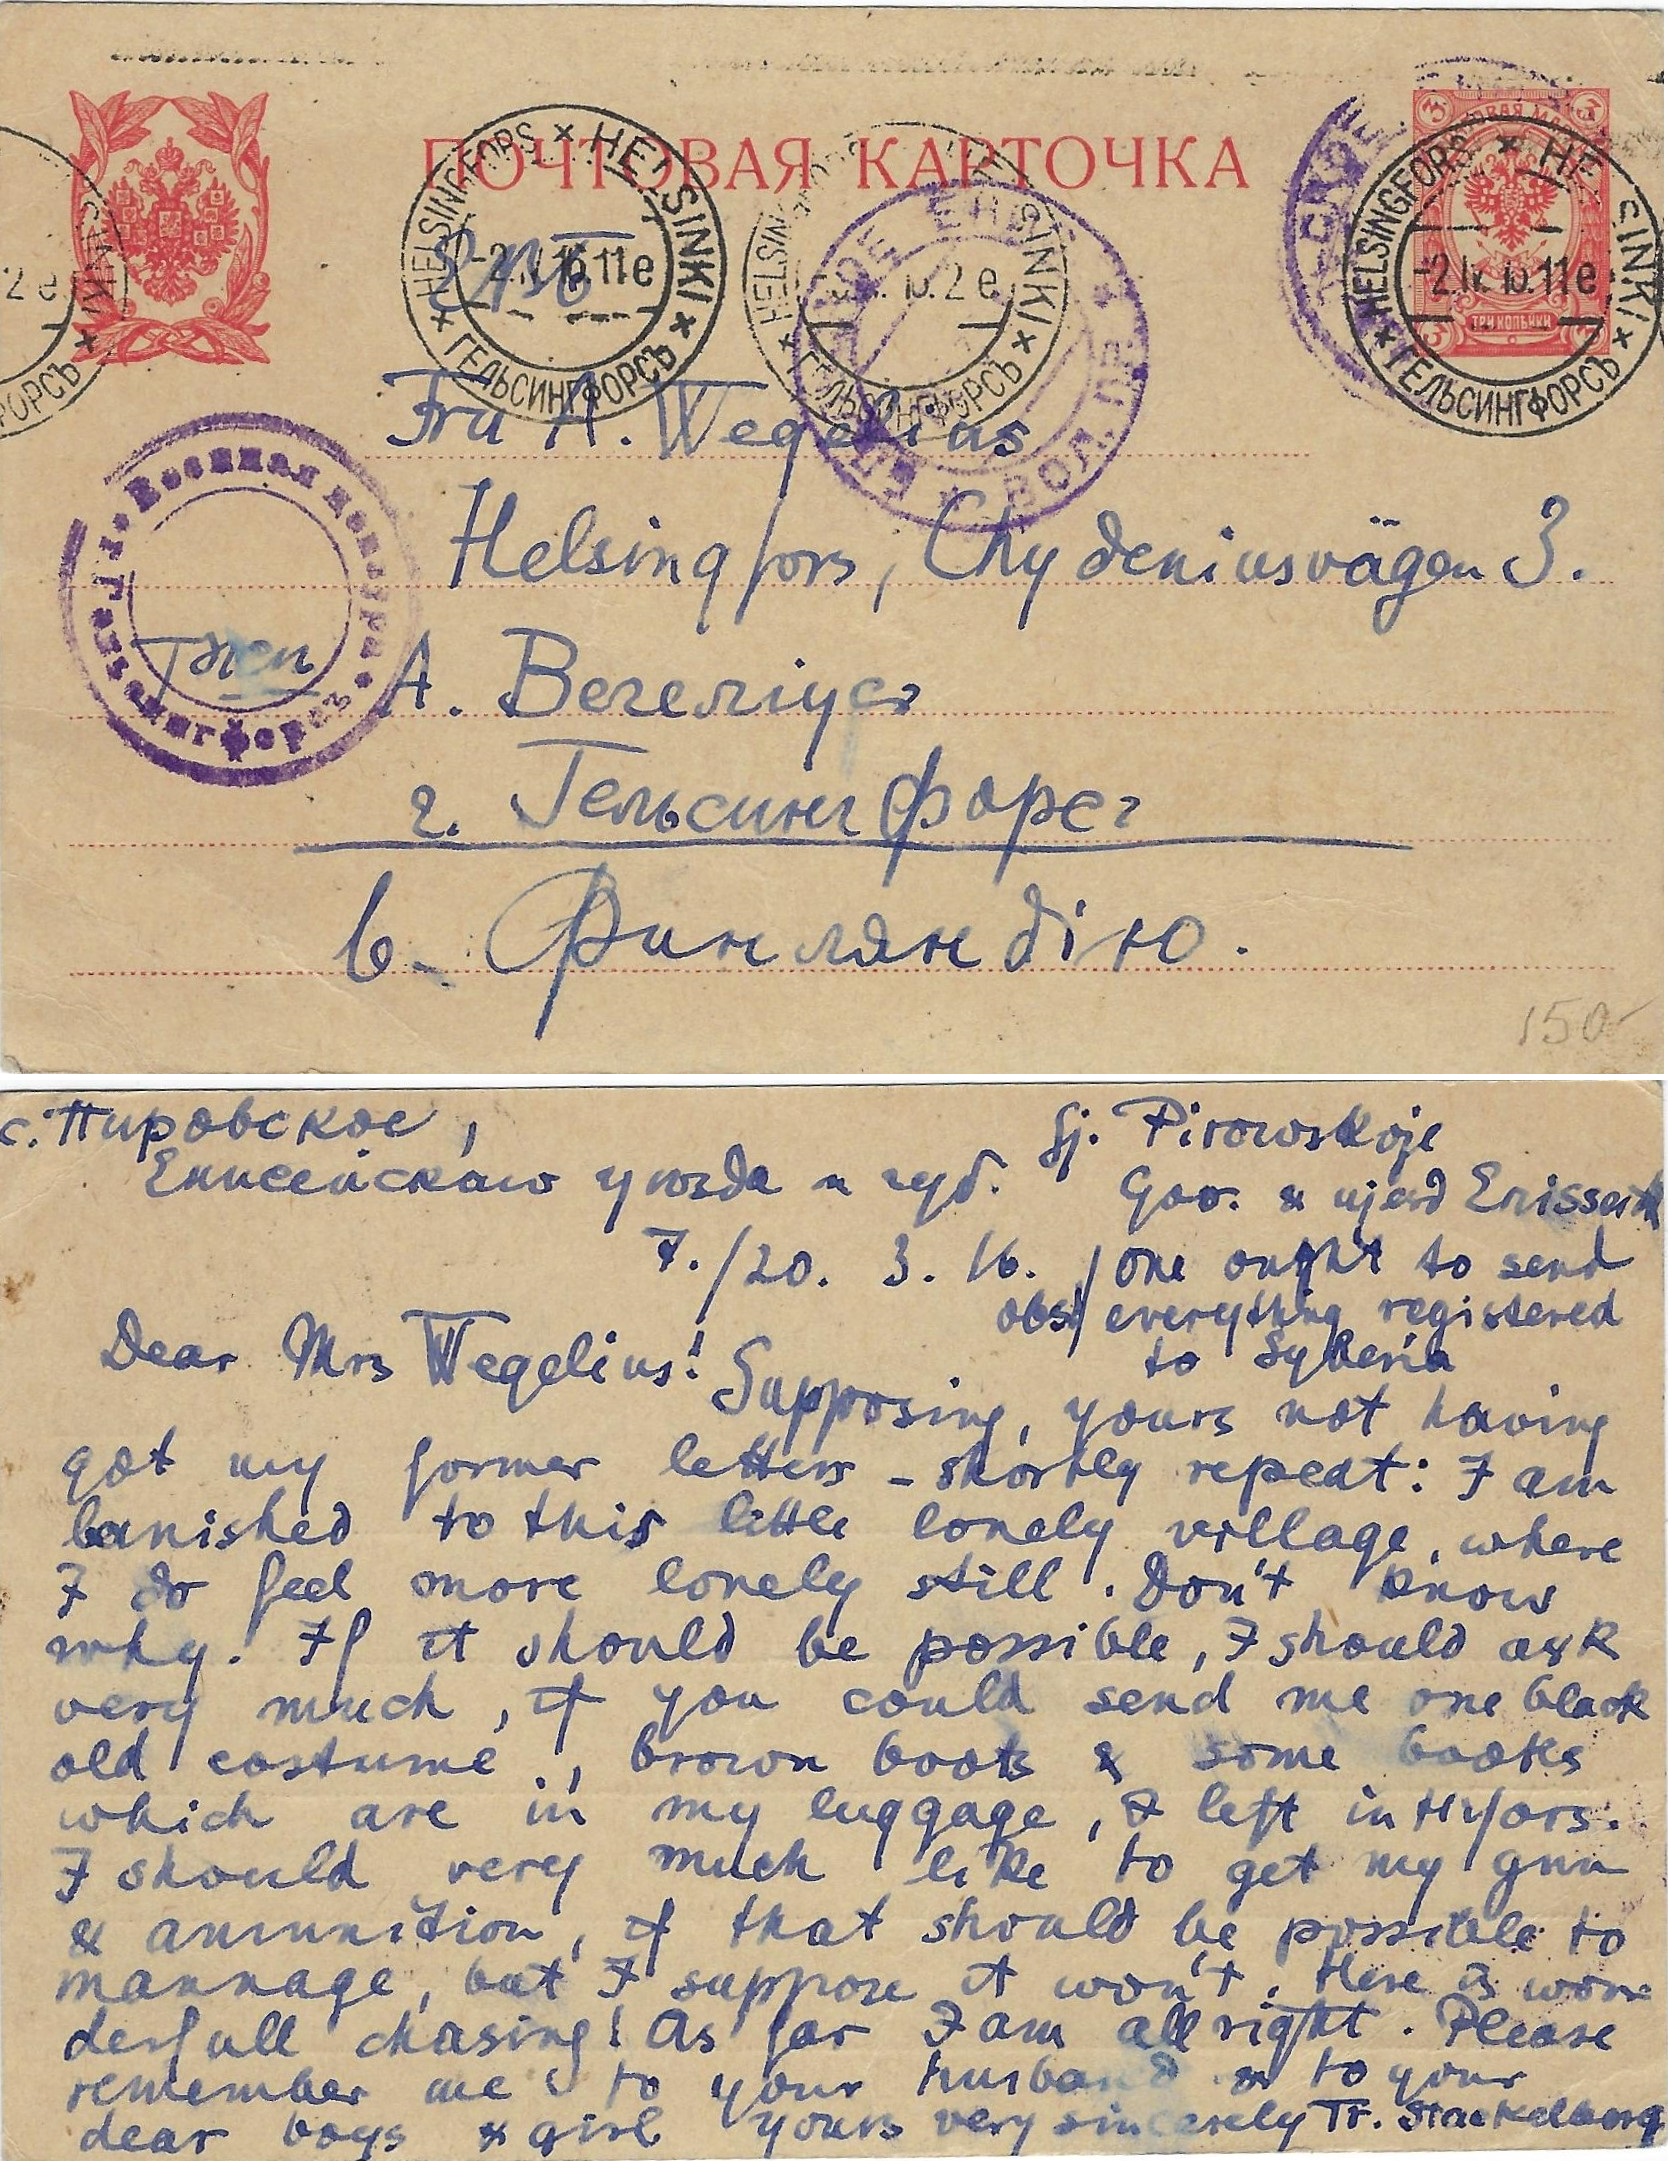 ПОЧТОВАЯ КАРТОЧКА
HELSINGFORS × HELSINKI
-2.IV.16.11e
ГЕЛЬСИНГФОРСЪ
HELSINGFORS HELSINKI
2e
ГЕЛЬСИНГФОРСЪ
HELSINGFORS × HELSINKI
-2.IV.16.11e
ГЕЛЬСИНГФОРСЪ
ТРИ КОПѢЙКИ
3
2e
Военная цензура
Гельсингфорсъ
Fru A. Wegelius
Helsingfors, Chydeniusvägen 3.
А. Вегеліусъ
г. Гельсингфорсъ
в. Финляндію.
150-
с. Пировское,
Sj. Pirowskoje
Енисейскаго уѣзда и губ.
Gov. & ujesd Enisseisk
7./20. 3. 16.
obs/ one ought to send
everything registered
to Syberia
Dear Mrs Wegelius! Supposing, yours not having
got my former letters - shortly repeat: I am
banished to this little lonely village, where
I do feel more lonely still. Don't know
why. If it should be possible, I should ask
very much, if you could send me one black
old costume, brown boots & some books
which are in my luggage, I left in H'fors.
I should very much like to get my gun
& amunition, if that should be possible to
mannage, but I suppose it won't. Here is won=
derfull chasing! As far I am all right. Please
remember me to your husband & to your
dear boys & girl yours very sincerely Tr. Stackelberg